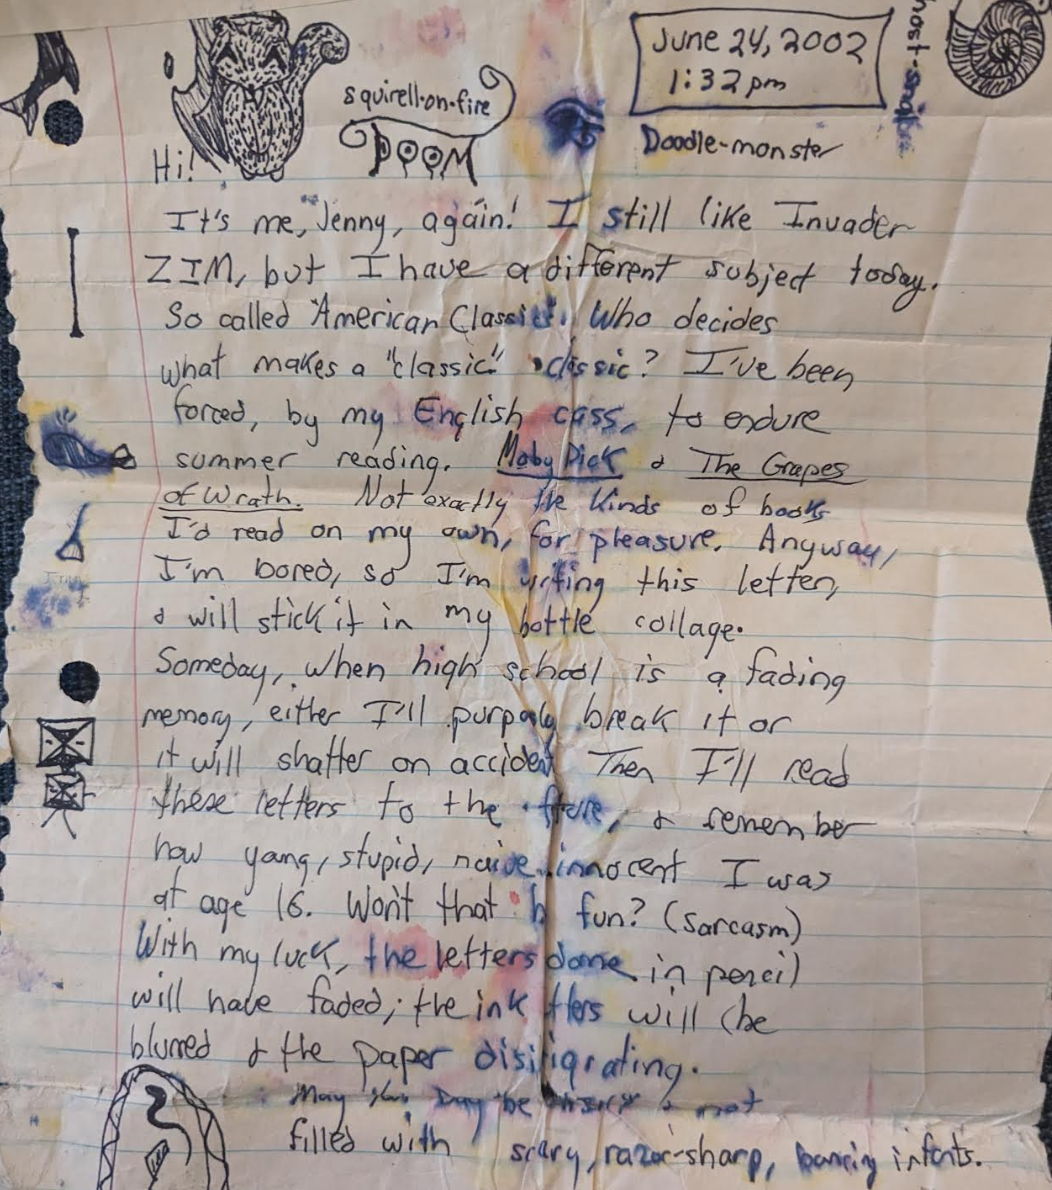 June 24, 2002
1:32 pm
squirell-on-fire
DOOM
Doodle-monster
Hi!
It's me, Jenny, again! I still like Invader
ZIM, but I have a different subject today.
So called "American Classics". Who decides
what makes a "classic" classic? I've been
forced, by my English cass, to endure
summer reading. Moby Dick & The Grapes
of Wrath. Not exactly the kinds of books
I'd read on my own, for pleasure. Anyway,
I'm bored, so I'm writing this letter,
& will stick it in my bottle collage.
Someday, when high school is a fading
memory, either I'll purposly break it or
it will shatter on accident. Then I'll read
these letters to the future, & remember
how young, stupid, naive, innocent I was
at age 16. Won't that b fun? (sarcasm)
With my luck, the letters done in pencil
will have faded; the ink will be
blurred & the paper disitigrating.
May this Day be & not
filled with scary, razor-sharp, infants.